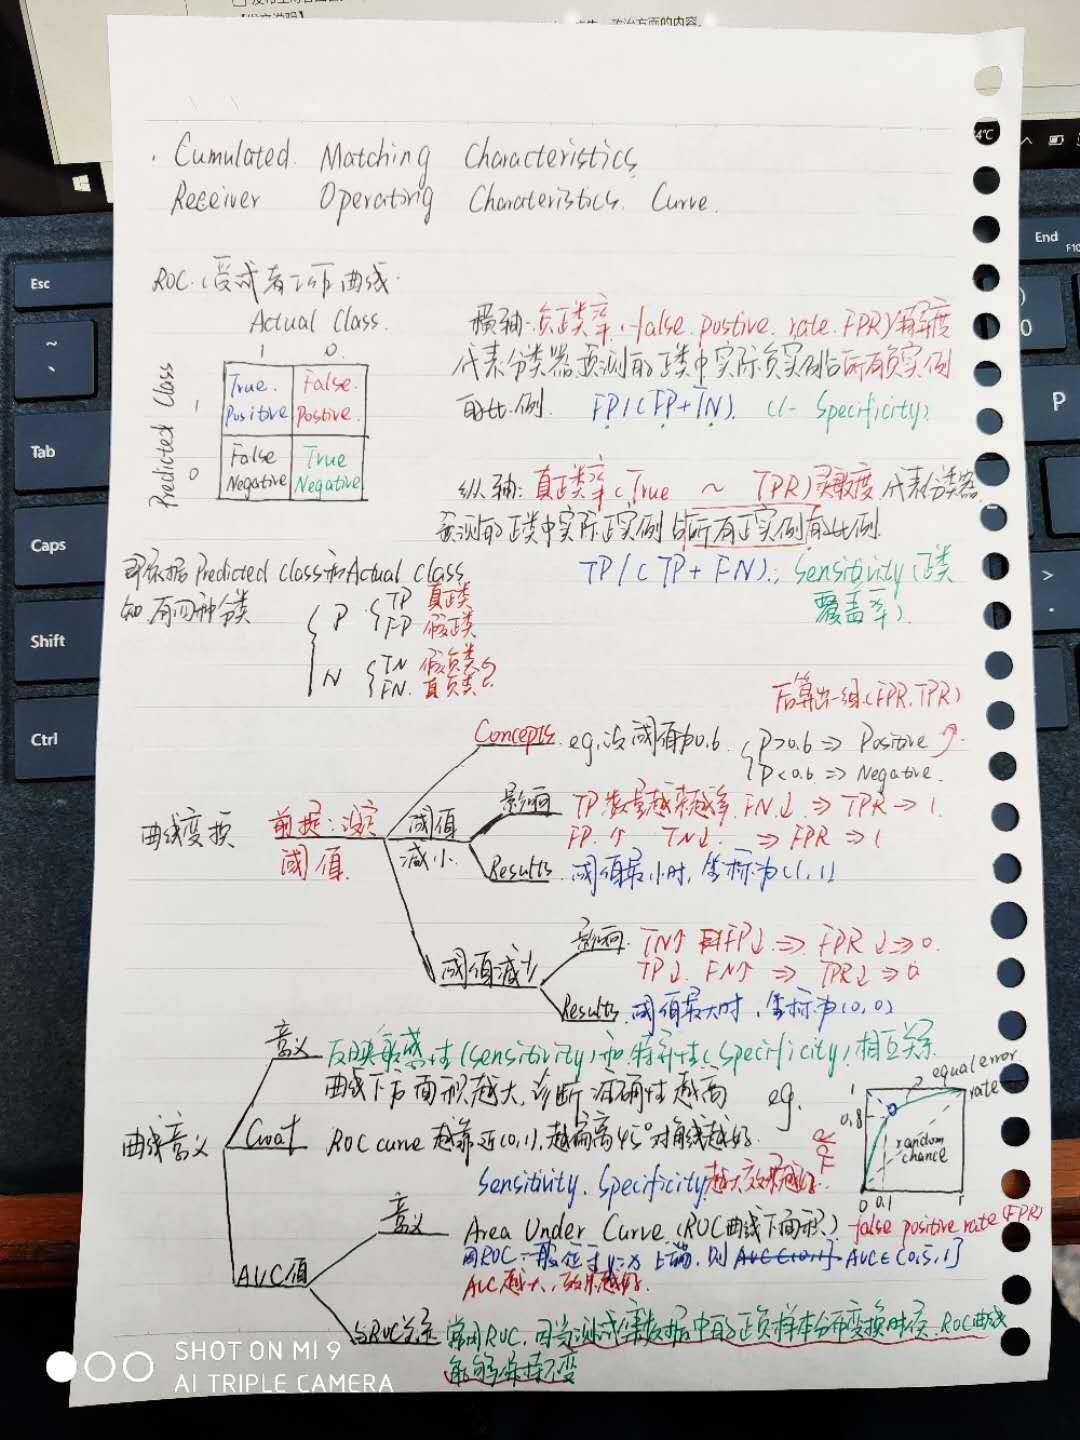 政治方面的内容.
4℃
. Cumulated Matching Characteristics
Receiver Operating Charateristics Curve.
ROC.(受试者工作曲线.
Actual Class.
1 0.
Predicted Class
1
0
True. Positive
False. Postive.
False Negative
True Negative
横轴:负正类率.(false postive rate. FPR)特异度
代表分类器预测的正类中实际负实例占所有负实例
的比例. FP/(FP+TN). (1- Specificity)
纵轴:真正类率(True ~ TPR)灵敏度 代表分类器
预测的正类中实际正实例占所有正实例的比例.
TP/(TP+FN).; Sensitivity(正类
覆盖率).
即依据Predicted Class和Actual Class
知有四种分类
P TP 真正类
FP 假正类
N TN 假负类?
FN. 真负类?
后算出一组(FPR,TPR)
曲线变换
前提:设定
阈值.
Concepts. eg.设阈值为0.6. P>0.6 => Positive
P<0.6 => Negative.
阈值
减小.
影响 TP数量越来越 FN↓ => TPR → 1.
FP.↑ TN↓. => FPR => 1
Results 阈值最小时,坐标为(1,1)
阈值减少
影响. TN↑ FP↓ => FPR ↓=>0.
TP↓ FN↑ => TPR↓=>0
Results 阈值最大时,坐标为(0,0)
曲线意义
意义 反映敏感性(Sensitivity)和特异性(Specificity)相互关系
曲线下方面积越大,诊断准确性越高
Goat ROC curve 越靠近(0,1),越偏离45°对角线越好.
Sensitivity. Specificity越大效果越好.
eg.
equal error
rate
1
0.8
TPR
random
chance
0 0.1 1
false positive rate(FPR)
AUC值
意义 Area Under Curve (ROC曲线下面积)
因ROC一般位于y=x上端,则 AUC(0,1] AUC∈(0.5,1]
AUC越大,效果越好.
与ROC关系 常用ROC,因为测试集数据中的正负样本分布变换时候,ROC曲线
能够保持不变
Esc
~
、
Tab
Caps
Shift
Ctrl
End
F10
)
0
P
>
.
SHOT ON MI 9
AI TRIPLE CAMERA